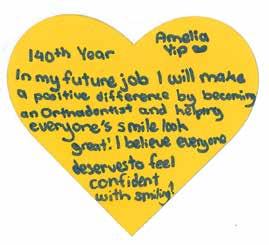 140th Year
Amelia
Yip
In my future job I will make
a positive difference by becoming
an Orthadontist and helping
everyone's smile look
great! I believe everyone
deserves to feel
confident
with smiling!